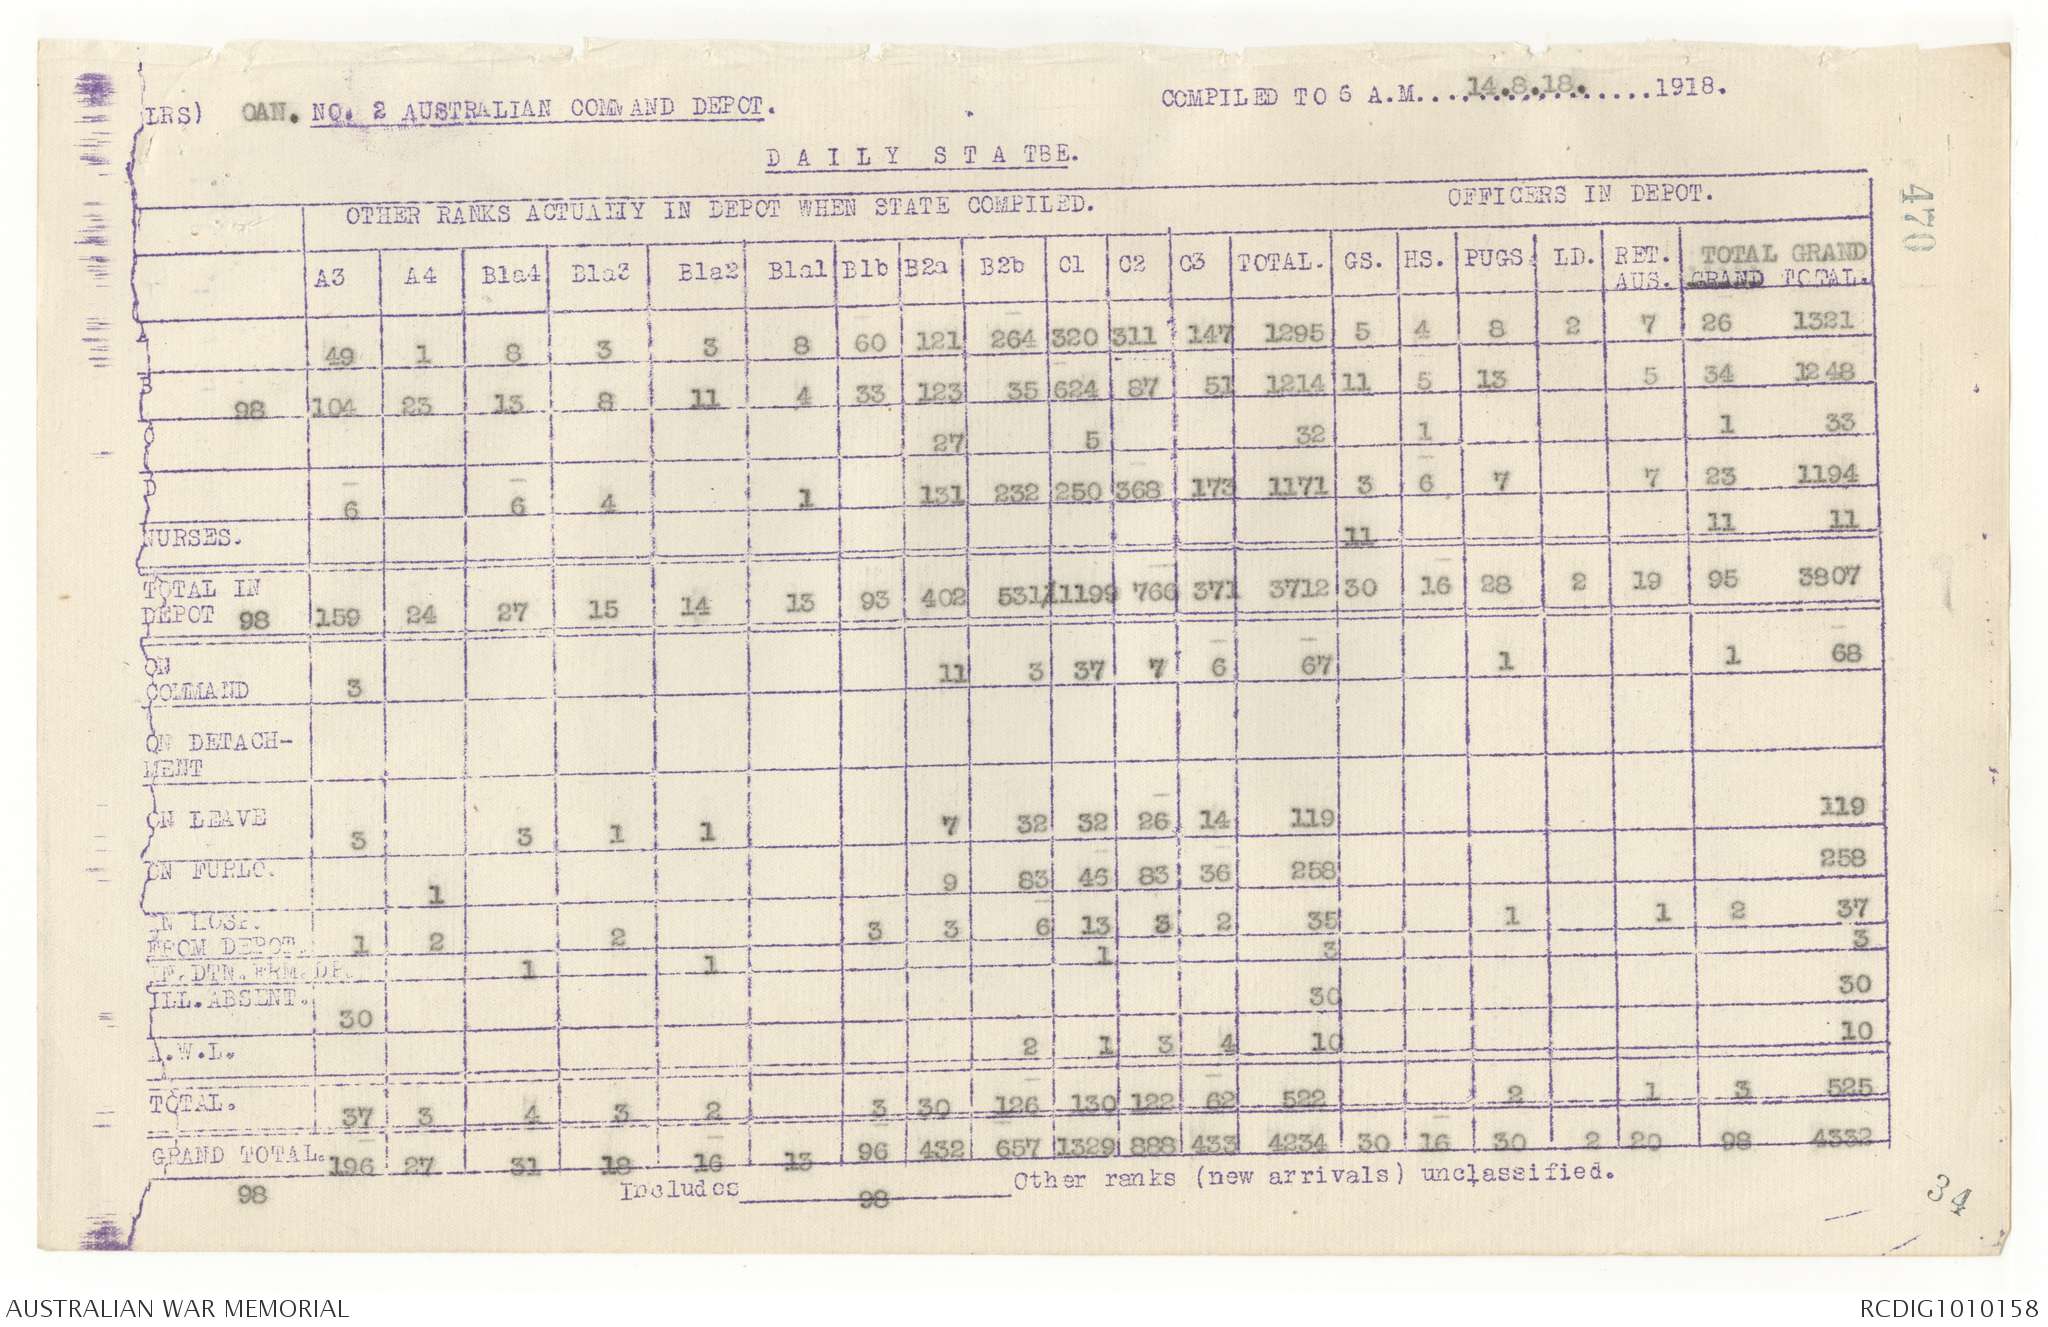 LRS) OAN. NO. 2 AUSTRALIAN COMMAND DEPOT. COMPILED TO 6 A.M....14.8.18.......1918.
D A I L Y S T A TBE.
OTHER RANKS ACTUALLY IN DEPOT WHEN STATE COMPILED. OFFICERS IN DEPOT.
A3 A4 B1a4 B1a3 B1a2 B1a1 B1b B2a B2b C1 C2 C3 TOTAL. GS. HS. PUGS. LD. RET. AUS. TOTAL GRAND GRAND TOTAL.
49 1 8 3 3 8 60 121 264 320 311 147 1295 5 4 8 2 7 26 1321
B 98 104 23 13 8 11 4 33 123 35 624 87 51 1214 11 5 13 5 34 1248
C 27 5 32 1 1 33
D 6 6 4 1 131 232 250 368 173 1171 3 6 7 7 23 1194
NURSES. 11 11 11
TOTAL IN
DEPOT 98 159 24 27 15 14 13 93 402 531 1199 766 371 3712 30 16 28 2 19 95 3807
ON
COMMAND 3 11 3 37 7 6 67 1 1 68
ON DETACH-
MENT
ON LEAVE 3 3 1 1 7 32 32 26 14 119 119
ON FURLO. 1 9 83 46 83 36 258 258
IN HOSP.
FROM DEPOT. 1 2 2 3 3 6 13 3 2 35 1 1 2 37
DTN. FRM. DP. 1 1 1 3 3
ILL. ABSENT. 30 30 30
A.W.L. 2 1 3 4 10 10
TOTAL. 37 3 4 3 2 3 30 126 130 122 62 522 2 1 3 525
GRAND TOTAL. 196 27 31 18 16 13 96 432 657 1329 888 433 4234 30 16 30 2 20 98 4332
98 Includes 98 Other ranks (new arrivals) unclassified.
470
34
AUSTRALIAN WAR MEMORIAL RCDIG1010158